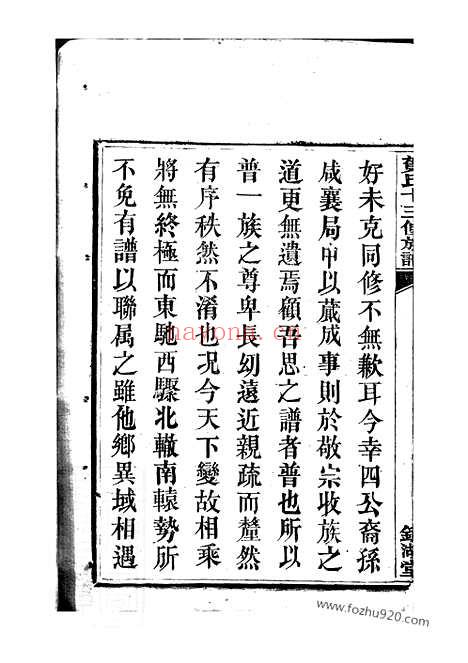 好未克同修不無歉耳今幸四公裔孫
咸襄局中以蕆成事則於敬宗收族之
道更無遺焉顧吾思之譜者普也所以
普一族之尊卑長幼遠近親疏而釐然
有序秩然不淆也况今天下變故相乘
將無終極而東馳西驟北轍南轅勢所
不免有譜以聯属之雖他鄉異域相遇
hayong.cn
www.fozhu920.com